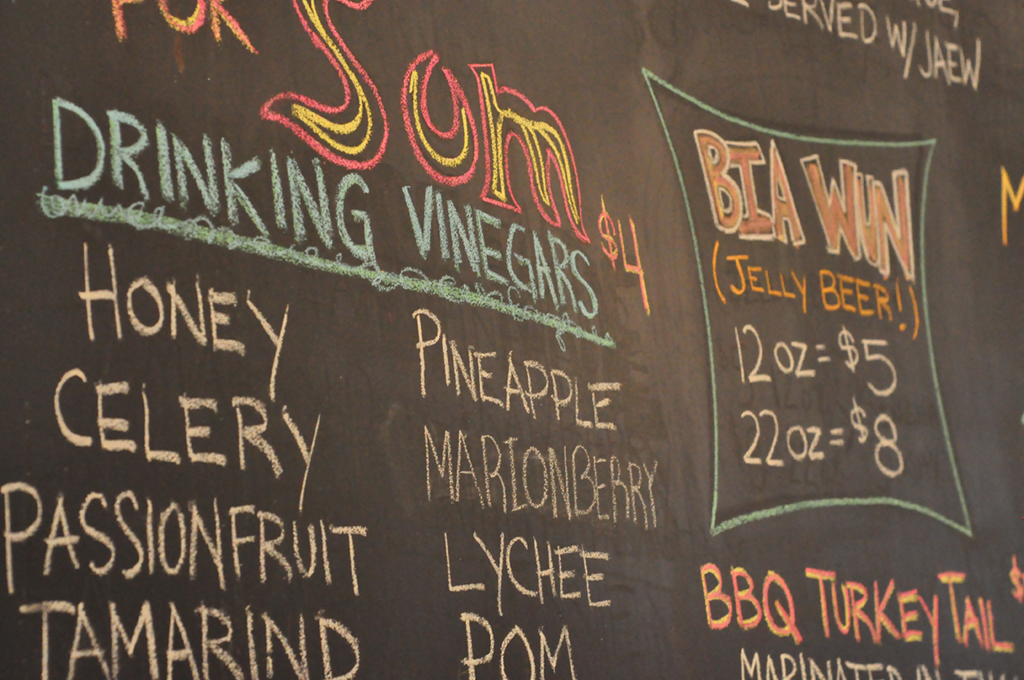 FOR
Som
DRINKING VINEGARS $4
HONEY
CELERY
PASSIONFRUIT
TAMARIND
PINEAPPLE
MARIONBERRY
LYCHEE
POM
SERVED W/JAEW
BIA WUN
(JELLY BEER!)
12oz=$5
22oz=$8
BBQ TURKEY TAIL $
MARINATED IN